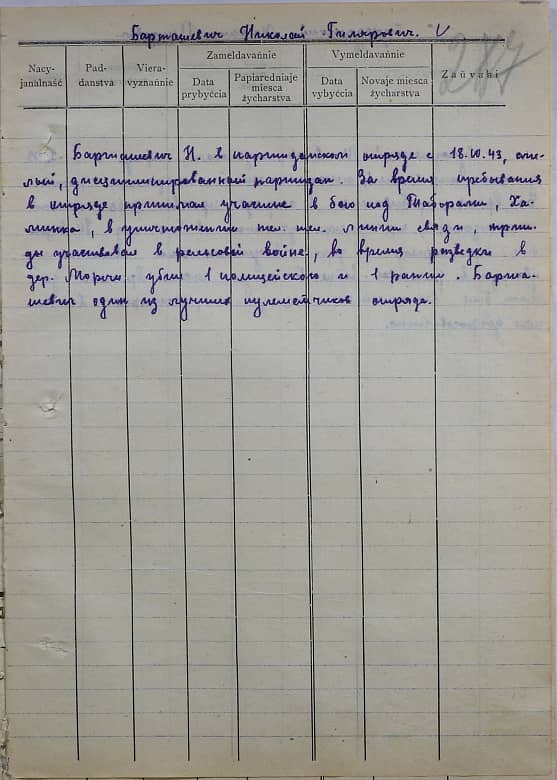 Барташевич Николай Гилярович. V
287
Nacy-
janalnaść
Pad-
danstva
Viera-
vyznańnie
Zameldavańnie
Data
prybyćcia
Papiaredniaje
miesca
žycharstva
Vymeldavańnie
Data
vybyćcia
Novaje miesca
žycharstva
Zaŭvahi
Барташевич Н. в партизанском отряде с 18.10.43, сме-
лый, дисциплинированный партизан. За время пребывания
в отряде принимал участие в бою под Таборами, Ха-
в уничтожении тел. тел. линии связи, триж-
ды участвовал в рельсовой войне, во время разведки в
дер. убил 1 полицейского и 1 ранил. Барта-
шевич один из лучших пулеметчиков отряда.